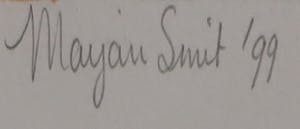 Marjan Smit '99